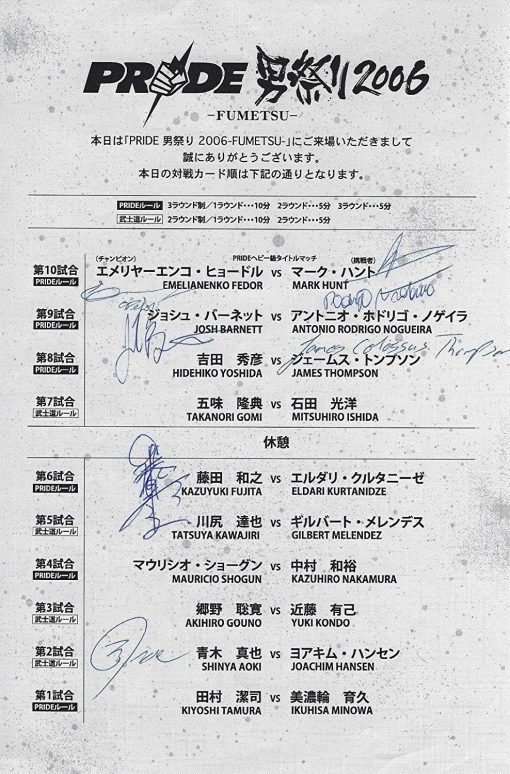 PRIDE 男祭り 2006
-FUMETSU-
本日は「PRIDE 男祭り 2006-FUMETSU-」にご来場いただきまして
誠にありがとうございます。
本日の対戦カード順は下記の通りとなります。
PRIDEルール 3ラウンド制/1ラウンド・・・10分 2ラウンド・・・5分 3ラウンド・・・5分
武士道ルール 2ラウンド制/1ラウンド・・・10分 2ラウンド・・・5分
(チャンピオン) PRIDEヘビー級タイトルマッチ (挑戦者)
第10試合 エメリヤーエンコ・ヒョードル vs マーク・ハント
PRIDEルール EMELIANENKO FEDOR MARK HUNT
Rodrigo
第9試合 ジョシュ・バーネット vs アントニオ・ホドリゴ・ノゲイラ
PRIDEルール JOSH BARNETT ANTONIO RODRIGO NOGUEIRA
James Colossus Thompson
第8試合 吉田 秀彦 vs ジェームス・トンプソン
PRIDEルール HIDEHIKO YOSHIDA JAMES THOMPSON
第7試合 五味 隆典 vs 石田 光洋
武士道ルール TAKANORI GOMI MITSUHIRO ISHIDA
休憩
第6試合 藤田 和之 vs エルダリ・クルタニーゼ
PRIDEルール KAZUYUKI FUJITA ELDARI KURTANIDZE
第5試合 川尻 達也 vs ギルバート・メレンデス
武士道ルール TATSUYA KAWAJIRI GILBERT MELENDEZ
第4試合 マウリシオ・ショーグン vs 中村 和裕
PRIDEルール MAURICIO SHOGUN KAZUHIRO NAKAMURA
第3試合 郷野 聡寛 vs 近藤 有己
武士道ルール AKIHIRO GOUNO YUKI KONDO
第2試合 青木 真也 vs ヨアキム・ハンセン
武士道ルール SHINYA AOKI JOACHIM HANSEN
第1試合 田村 潔司 vs 美濃輪 育久
PRIDEルール KIYOSHI TAMURA IKUHISA MINOWA